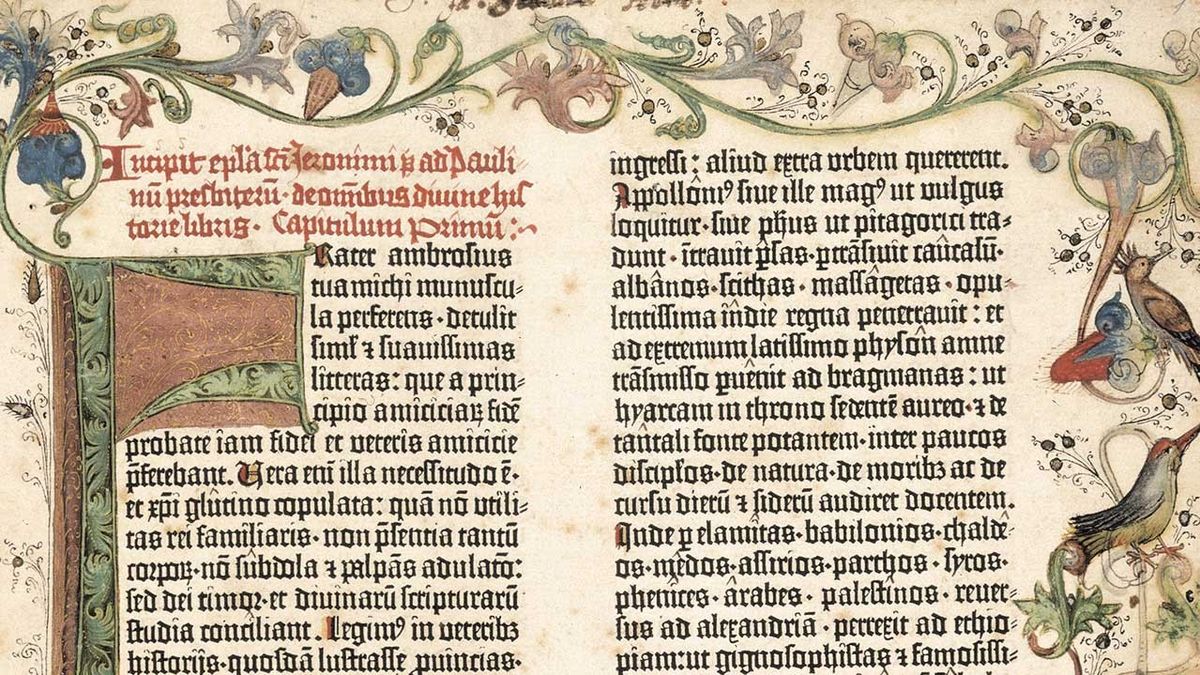 Incipit epl̄a sc̄i Jeronimi p̄ ad Pauli-
nū presbiterū· de om̄ibus divine his
torie libris· Capitulum Primū:·
Frater ambrosius
tua michi munuscu-
la perferens· detulit
siml̄ ⁊ suavissimas
litteras: que a prin-
cipio amiciciaꝝ fidē
probate iam fidei et veteris amicicie
p̄ferebant. Vera enī illa necessitudo ē·
et xp̄i glutino copulata: quā nō utili-
tas rei familiaris· non p̄sentia tantū
corpoꝝ· nō subdola ⁊ palpās adulatō:
sed dei timor· et divinarū scripturarū
studia conciliant. Legimꝰ in veteribꝫ
historijs· quosdā lustrasse ꝓuincias·
ingressi: aliud extra urbem quererent.
Appolloniꝰ sive ille magꝰ ut vulgus
loquitur· sive ph̄us ut pitagorici tra-
dunt· ītravit p̄sas· ꝑtrāsivit caucasū·
albanos· scithas· massagetas· opu-
lentissima īdie regna penetravit: et
ad extremum latissimo physon amne
trāsmisso ꝑvenit ad bragmanas: ut
hyarcam in throno sedentē aureo· ⁊ de
tantali fonte potantem· inter paucos
discipl̄os· de natura· de moribꝫ ac de
cursu dierū ⁊ siderū audiret docentem.
Inde ꝑ elamitas· babilonios· chalde-
os· medos· assirios· parthos· syros·
phenices· arabes· palestinos· rever-
sus ad alexandriā· perrexit ad ethio-
piam: ut gignosophistas ⁊ famosissi-